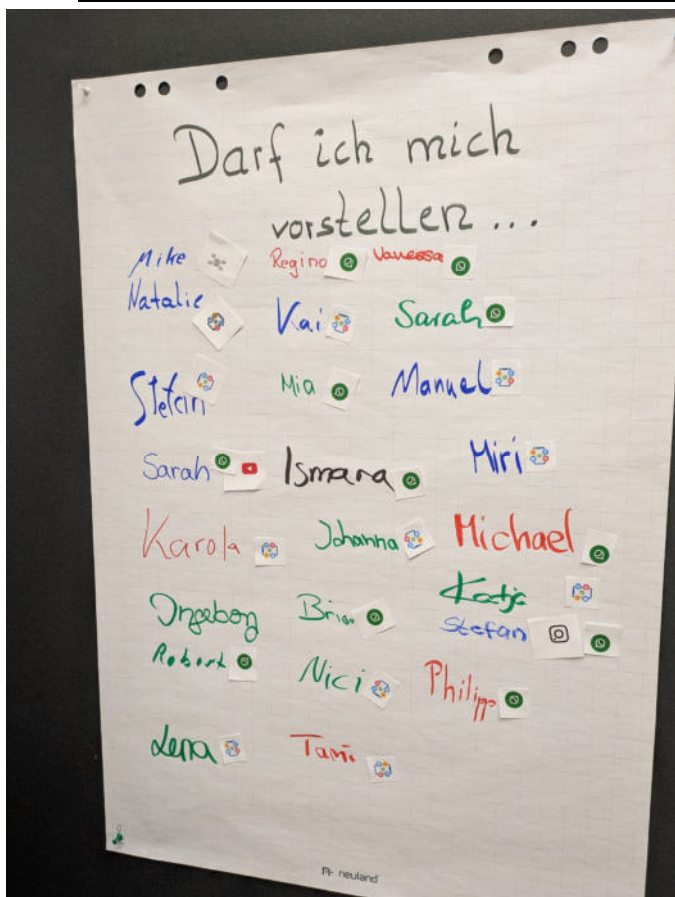 Darf ich mich
vorstellen ...
Mike Regino Vanessa
Natalie Kai Sarah
Stefan Mia Manuel
Sarah Ismara Miri
Karola Johanna Michael
Katja
Ingeborg Brian Stefan
Robert Nici Philipp
Lena Tami
neuland